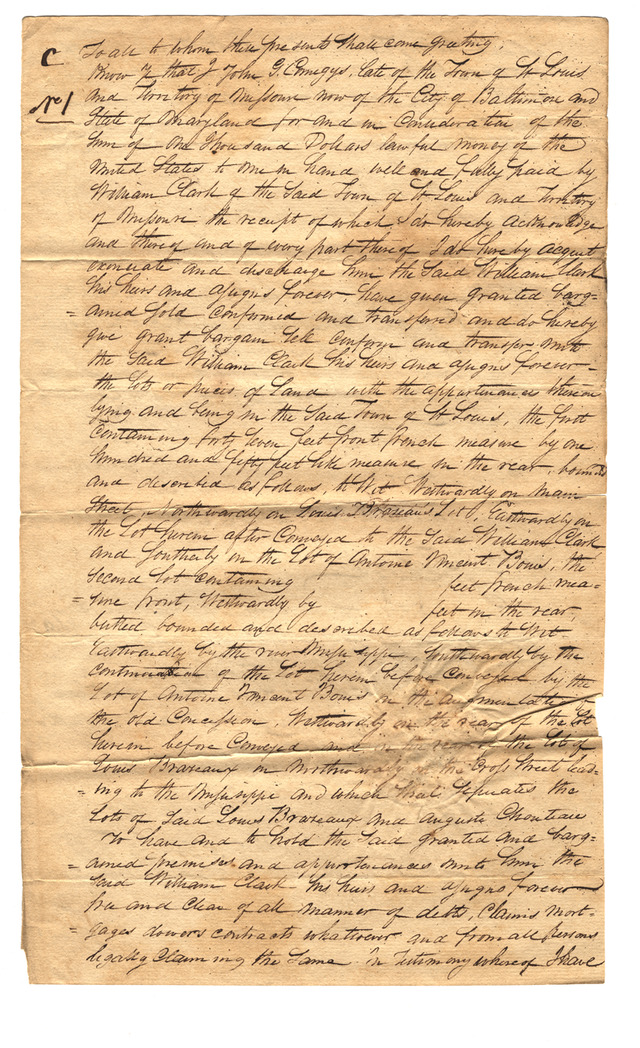 C
To all to whom these presents shall come greeting.
Know Ye that I John G. Comegys, late of the Town of St Louis
No 1
and Territory of Missouri now of the City of Baltimore and
State of Maryland for and in Consideration of the
sum of One Thousand Dollars lawful money of the
United States to me in hand well and fully paid by
William Clark of the Said Town of St Louis and Territory
of Missouri the receipt of which I do hereby acknowledge
and thereof and of every part thereof I do hereby acquit
exonerate and discharge him the Said William Clark
his heirs and assigns forever, have given granted barg-
= ained Sold confirmed and transferred and do hereby
give grant bargain sell confirm and transfer unto
the said William Clark his heirs and assigns forever -
the lots or pieces of Land with the appurtenances thereon
lying and being in the Said Town of St Louis, the first
Containing forty seven feet front french measure by one
hundred and fifty feet like measure in the rear, bounded
and described as follows, to Wit Westwardly on Main
Street, Northwardly on Louis Brazeaus Lot, Eastwardly on
the Lot herein after Conveyed to the Said William Clark
and Southerly on the Lot of Antoine Vincent Bouis, the
second lot containing feet french mea-
= sure front, Westwardly by feet in the rear,
butted bounded and described as follows to Wit
Eastwardly by the river Mississippi, Southwardly by the
of the Lot herein before Conveyed by the
Lot of Antoine Vincent Bouis in the augmentation to
the old Concession, Westwardly on the rear of the Lot
herein before Conveyed and on the rear of the Lot of
Louis Brazeaux on Northwardly the Cross Street lead-
= ing to the Mississippi and which Seperates the
Lots of Said Louis Brazeaux and Auguste Chouteau
To have and to hold the Said granted and barg-
= ained premises and appurtenances unto him the
Said William Clark his heirs and assigns forever
free and Clear of all manner of debts, Claims Mort-
= gages dowers contracts whatsoever and from all Persons
legally Claiming the Same In Testimony whereof I have